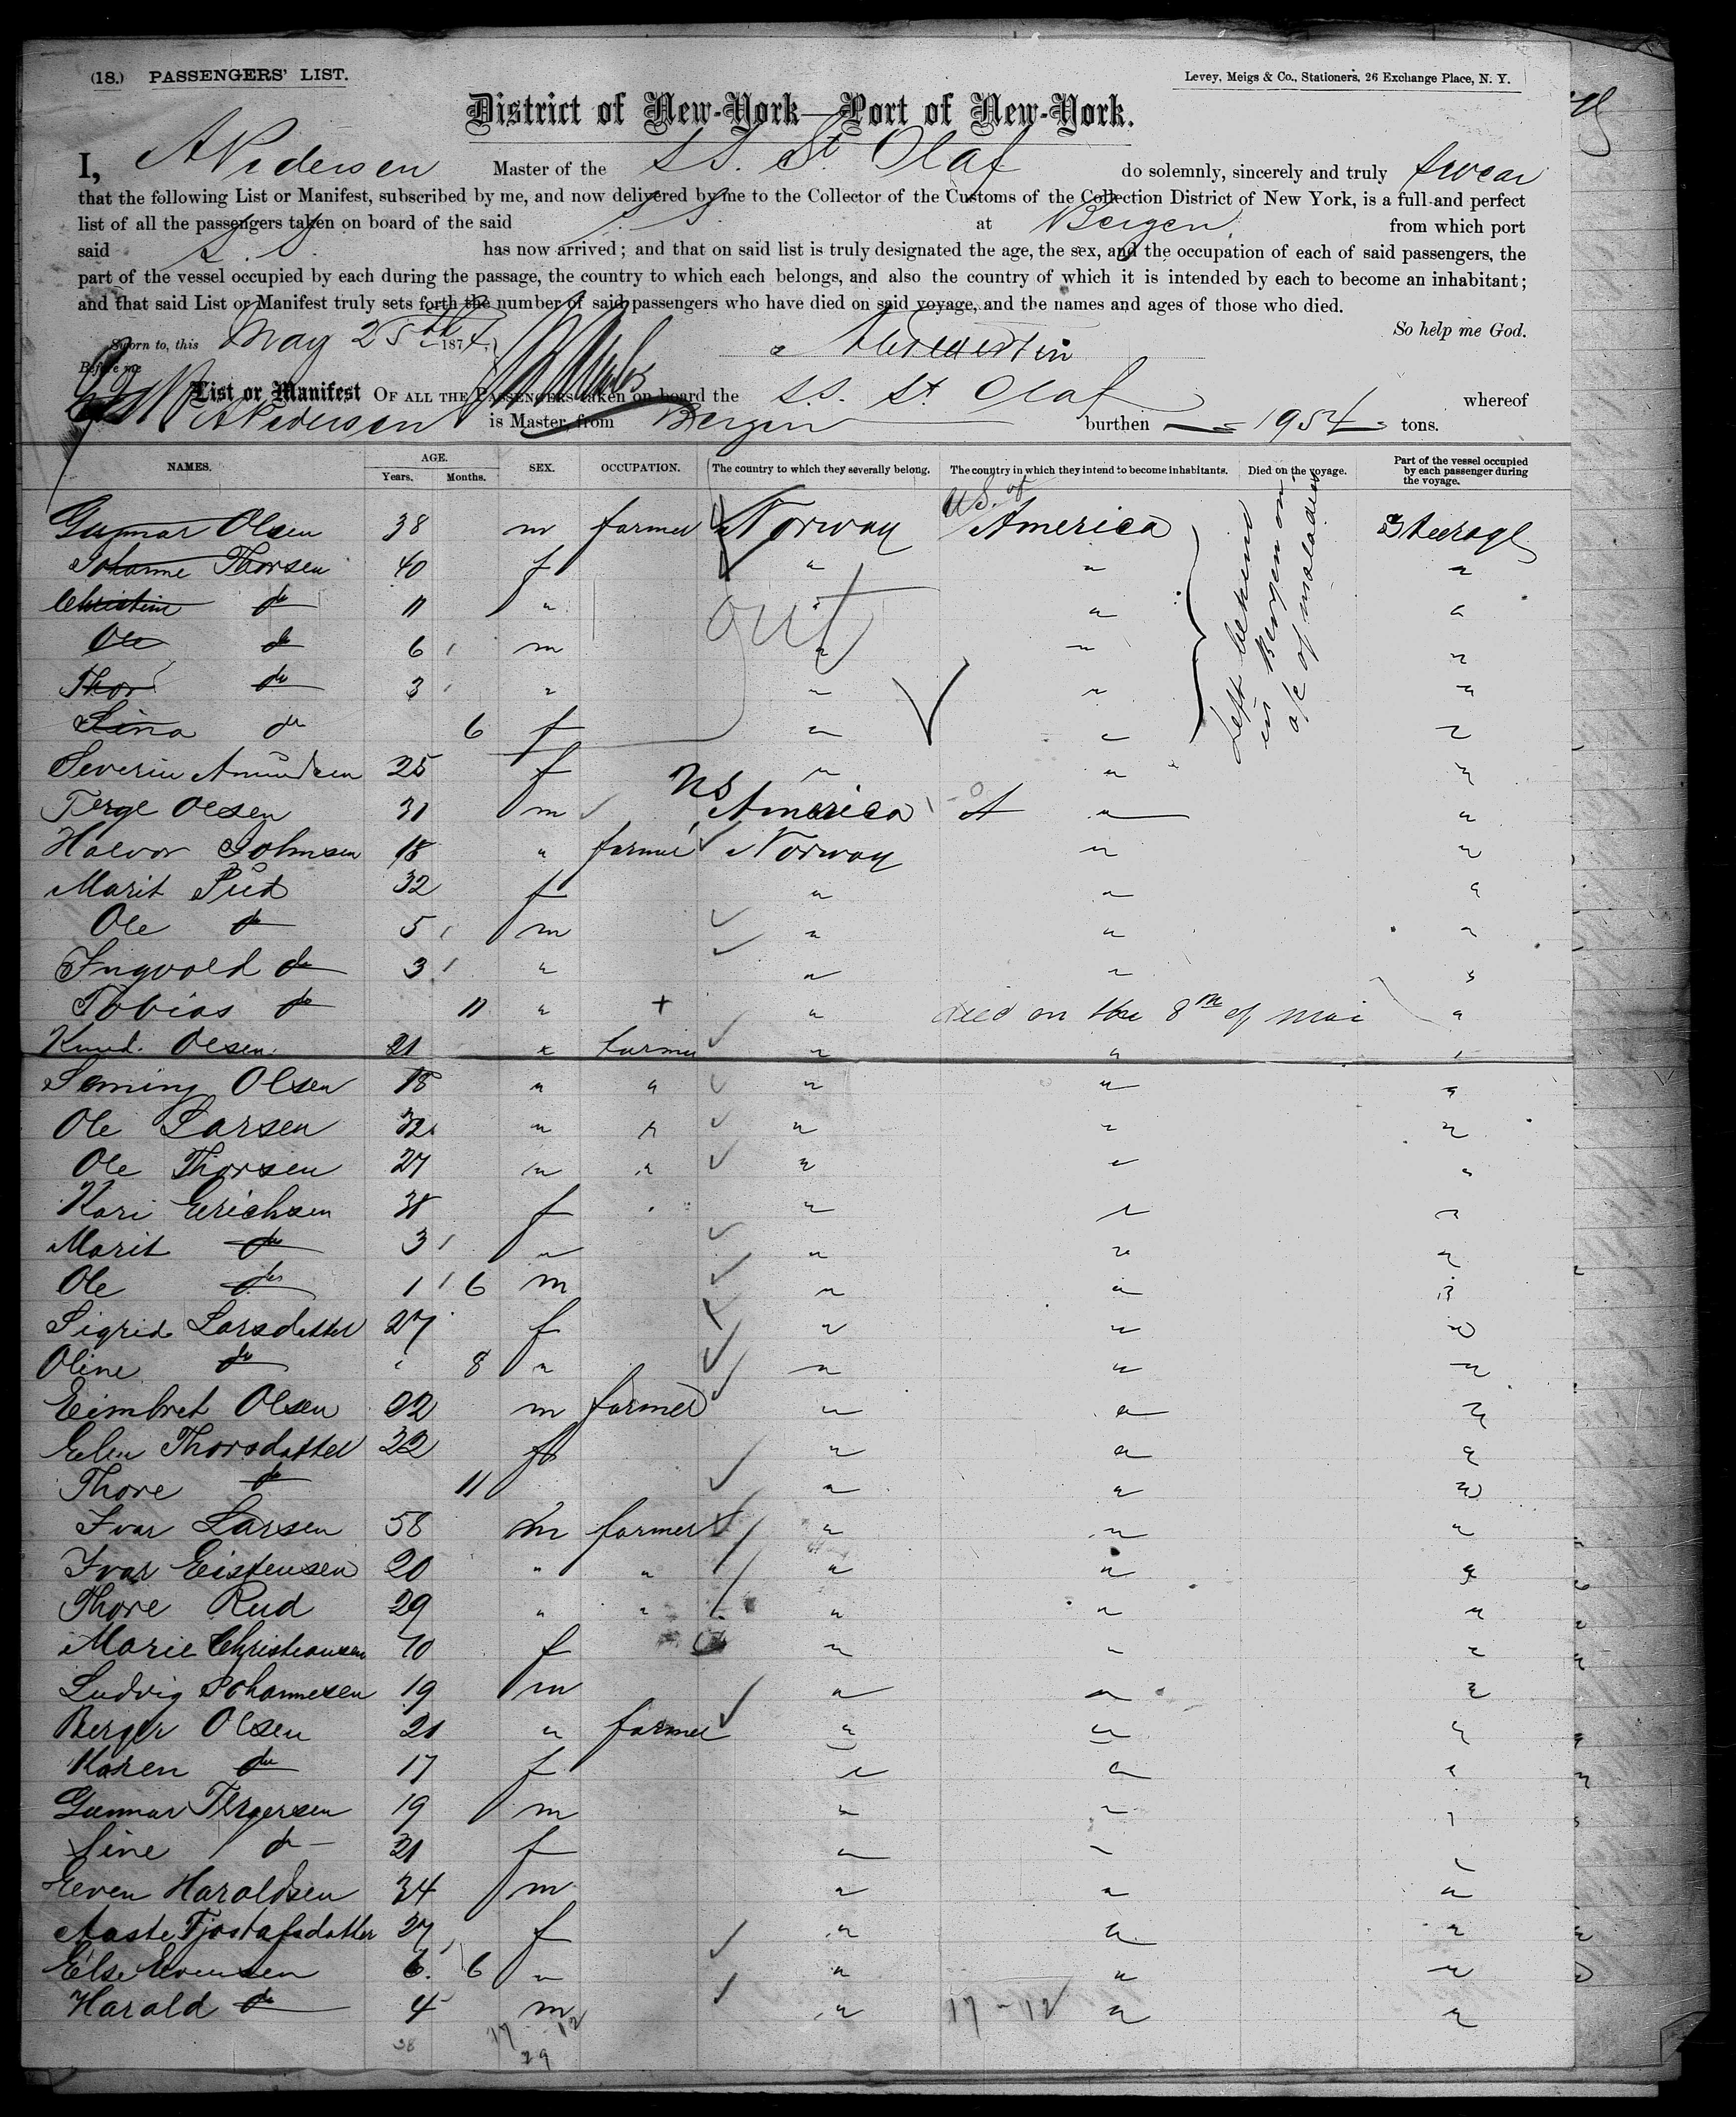 (18.) PASSENGERS' LIST.
Levey, Meigs & Co., Stationers, 26 Exchange Place, N. Y.
District of New-York—Port of New-York.
I, A Pedersen Master of the S.S. St Olaf do solemnly, sincerely and truly swear
that the following List or Manifest, subscribed by me, and now delivered by me to the Collector of the Customs of the Collection District of New York, is a full and perfect
list of all the passengers taken on board of the said S.S. at Bergen, from which port
said S.S. has now arrived; and that on said list is truly designated the age, the sex, and the occupation of each of said passengers, the
part of the vessel occupied by each during the passage, the country to which each belongs, and also the country of which it is intended by each to become an inhabitant;
and that said List or Manifest truly sets forth the number of said passengers who have died on said voyage, and the names and ages of those who died.
So help me God.
Sworn to, this May 25th 1874,
Before me
List or Manifest OF ALL THE PASSENGERS taken on board the S.S. St Olaf whereof
A Pedersen is Master, from Bergen burthen 1954 tons.
NAMES. AGE. Years. Months. SEX. OCCUPATION. The country to which they severally belong. The country in which they intend to become inhabitants. Died on the voyage. Part of the vessel occupied by each passenger during the voyage.
Gunnar Olsen 38 m farmer Norway U.S. of America Steerage
Johanne Thorsen 40 f " " "
Christine do 11 " " " "
Ole do 6 m " " "
Thor do 3 " " " "
Lina do 6 f " " "
out
Left behind in Bergen on a/c of maladies
Severin Amundsen 25 f " " "
Terge Olsen 31 m US America " "
Halvor Johnsen 18 " farmer Norway " "
Marit Rud 32 f " " "
Ole do 5 m " " "
Ingvold do 3 " " " "
Tobias do 11 " + " died on the 8th of mai "
Knud Olsen 21 " farmer " " "
Seming Olsen 18 " " " " "
Ole Larsen 32 " " " " "
Ole Thorsen 27 " " " " "
Kari Erichsen 38 f " " "
Marit do 3 " " " "
Ole do 1 6 m " " "
Sigrid Larsdatter 27 f " " "
Oline do 8 " " " "
Eimbret Olsen 22 m farmer " " "
Elen Thorsdatter 22 f " " "
Thore do 11 " " "
Ivar Larsen 58 m farmer " " "
Ivar Eistensen 20 " " " " "
Thore Rud 29 " " " " "
Marie Christiansen 70 f " " "
Ludvig Johannesen 19 m " " "
Berger Olsen 21 " farmer " " "
Karen do 17 f " " "
Gunnar Tergersen 19 m " " "
Sine do 21 f " " "
Even Haraldsen 34 m " " "
Aaste Tjostafsdatter 27 f " " "
Else Evensen 6 6 " " " "
Harald do 4 m " " "
17 - 12
38 17 12
29